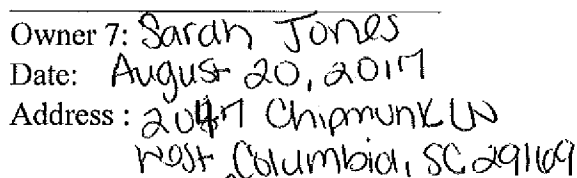 Owner 7: Sarah Jones
Date: August 20, 2017
Address : 2047 Chipmunk LN
West Columbia, SC 29169